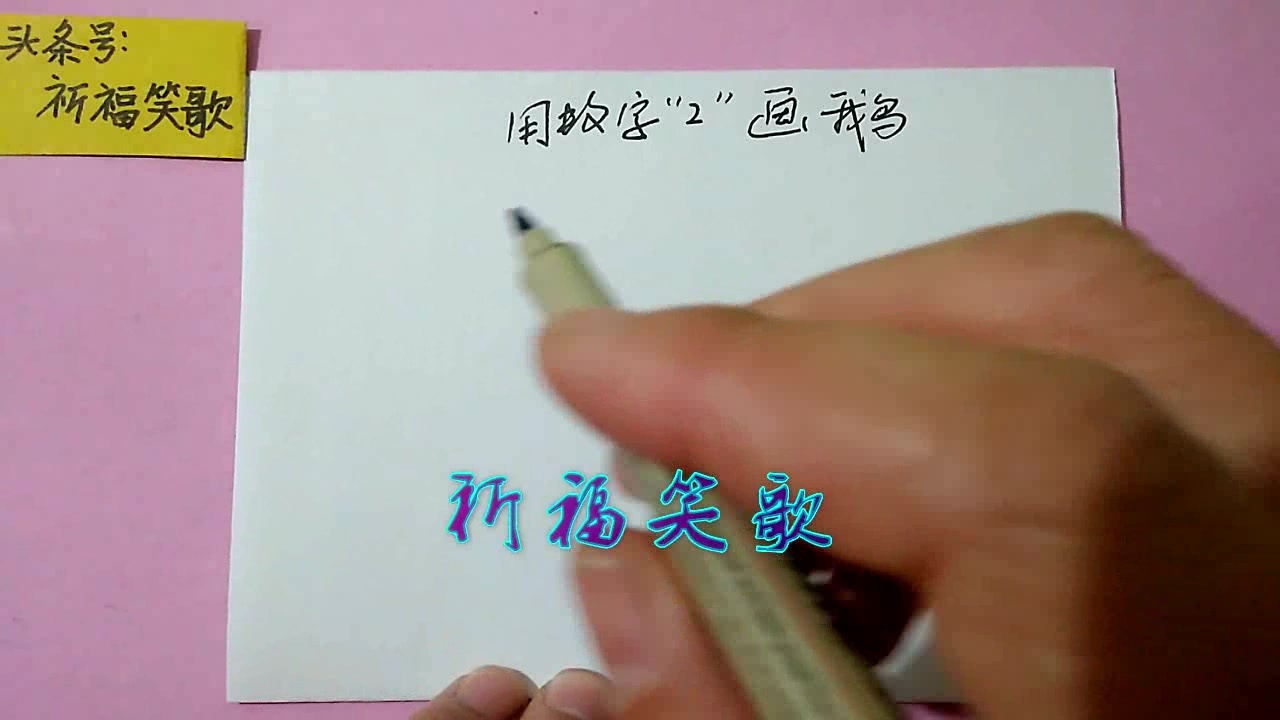 头条号:
祈福笑歌
用数字“2”画鹅
祈福笑歌